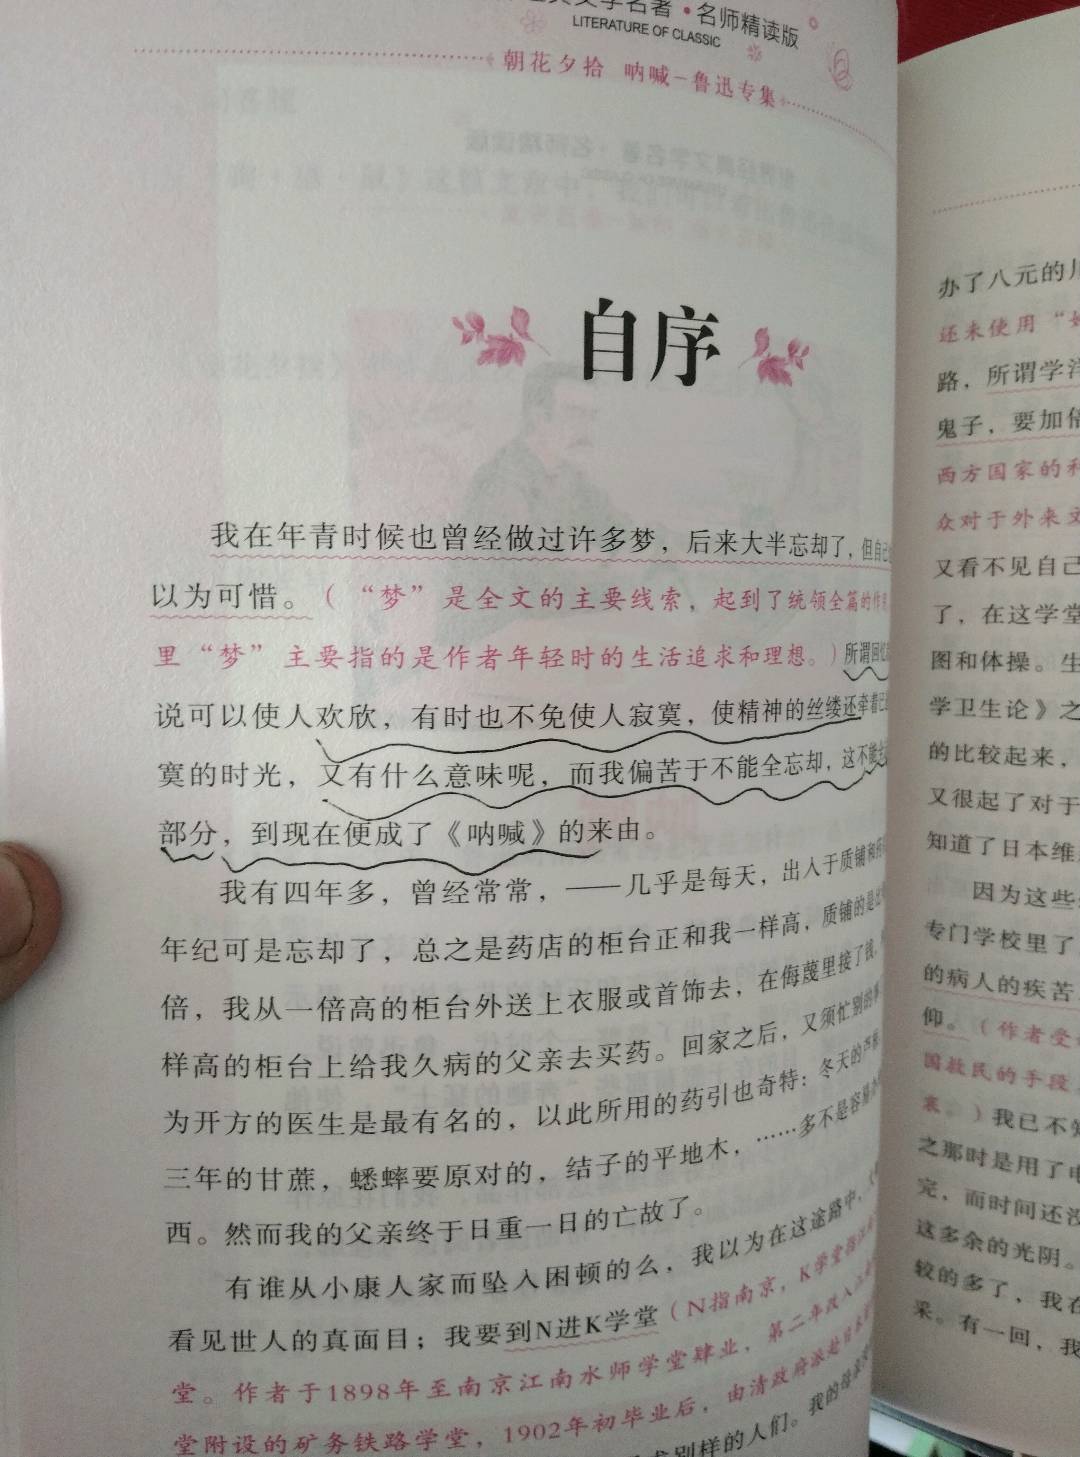 名著·名师精读版
LITERATURE OF CLASSIC
朝花夕拾 呐喊-鲁迅专集
自序
我在年青时候也曾经做过许多梦，后来大半忘却了，但自己
以为可惜。（“梦”是全文的主要线索，起到了统领全篇的作
里“梦”主要指的是作者年轻时的生活追求和理想。）所谓回忆
说可以使人欢欣，有时也不免使人寂寞，使精神的丝缕还牵着已
寞的时光，又有什么意味呢，而我偏苦于不能全忘却，这不能
部分，到现在便成了《呐喊》的来由。
我有四年多，曾经常常，——几乎是每天，出入于质铺和
年纪可是忘却了，总之是药店的柜台正和我一样高，质铺的是比
倍，我从一倍高的柜台外送上衣服或首饰去，在侮蔑里接了钱，
样高的柜台上给我久病的父亲去买药。回家之后，又须忙别的事
为开方的医生是最有名的，以此所用的药引也奇特：冬天的芦
三年的甘蔗，蟋蟀要原对的，结子的平地木，……多不是容易
西。然而我的父亲终于日重一日的亡故了。
有谁从小康人家而坠入困顿的么，我以为在这途路中，
看见世人的真面目；我要到N进K学堂（N指南京，K学堂指江南
堂。作者于1898年至南京江南水师学堂肄业，第二年改入江南
堂附设的矿务铁路学堂，1902年初毕业后，由清政府派赴日本
别样的人们。我的母亲
办了八元的川
还未使用“
路，所谓学洋
鬼子，要加倍
西方国家的
众对于外来文
又看不见自己
了，在这学堂
图和体操。生
学卫生论》之
的比较起来，
又很起了对于
知道了日本维
因为这些
专门学校里了
的病人的疾苦
仰。（作者受
国救民的手段
衷。）我已不知
之那时是用了电
完，而时间还没
这多余的光阴。
较的多了，我在
采。有一回，我